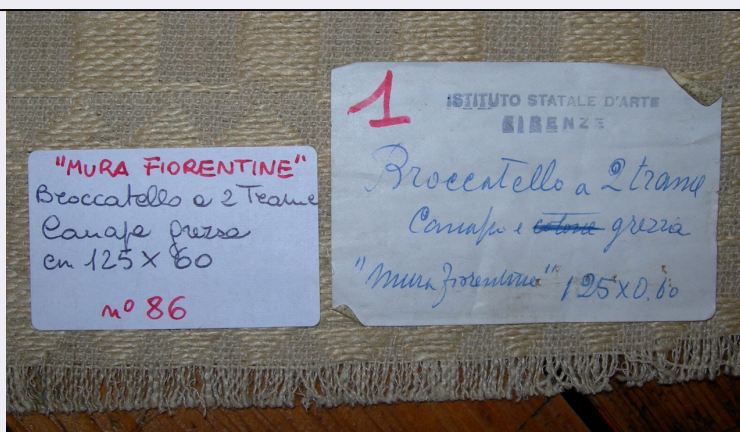 "MURA FIORENTINE"
Broccatello a 2 Trame
Canapa grezza
cm 125 X 60
nº 86
1
ISTITUTO STATALE D'ARTE
FIRENZE
Broccatello a 2 trame
Canapa e cotone grezzia
"Mura fiorentine" 125x0.60